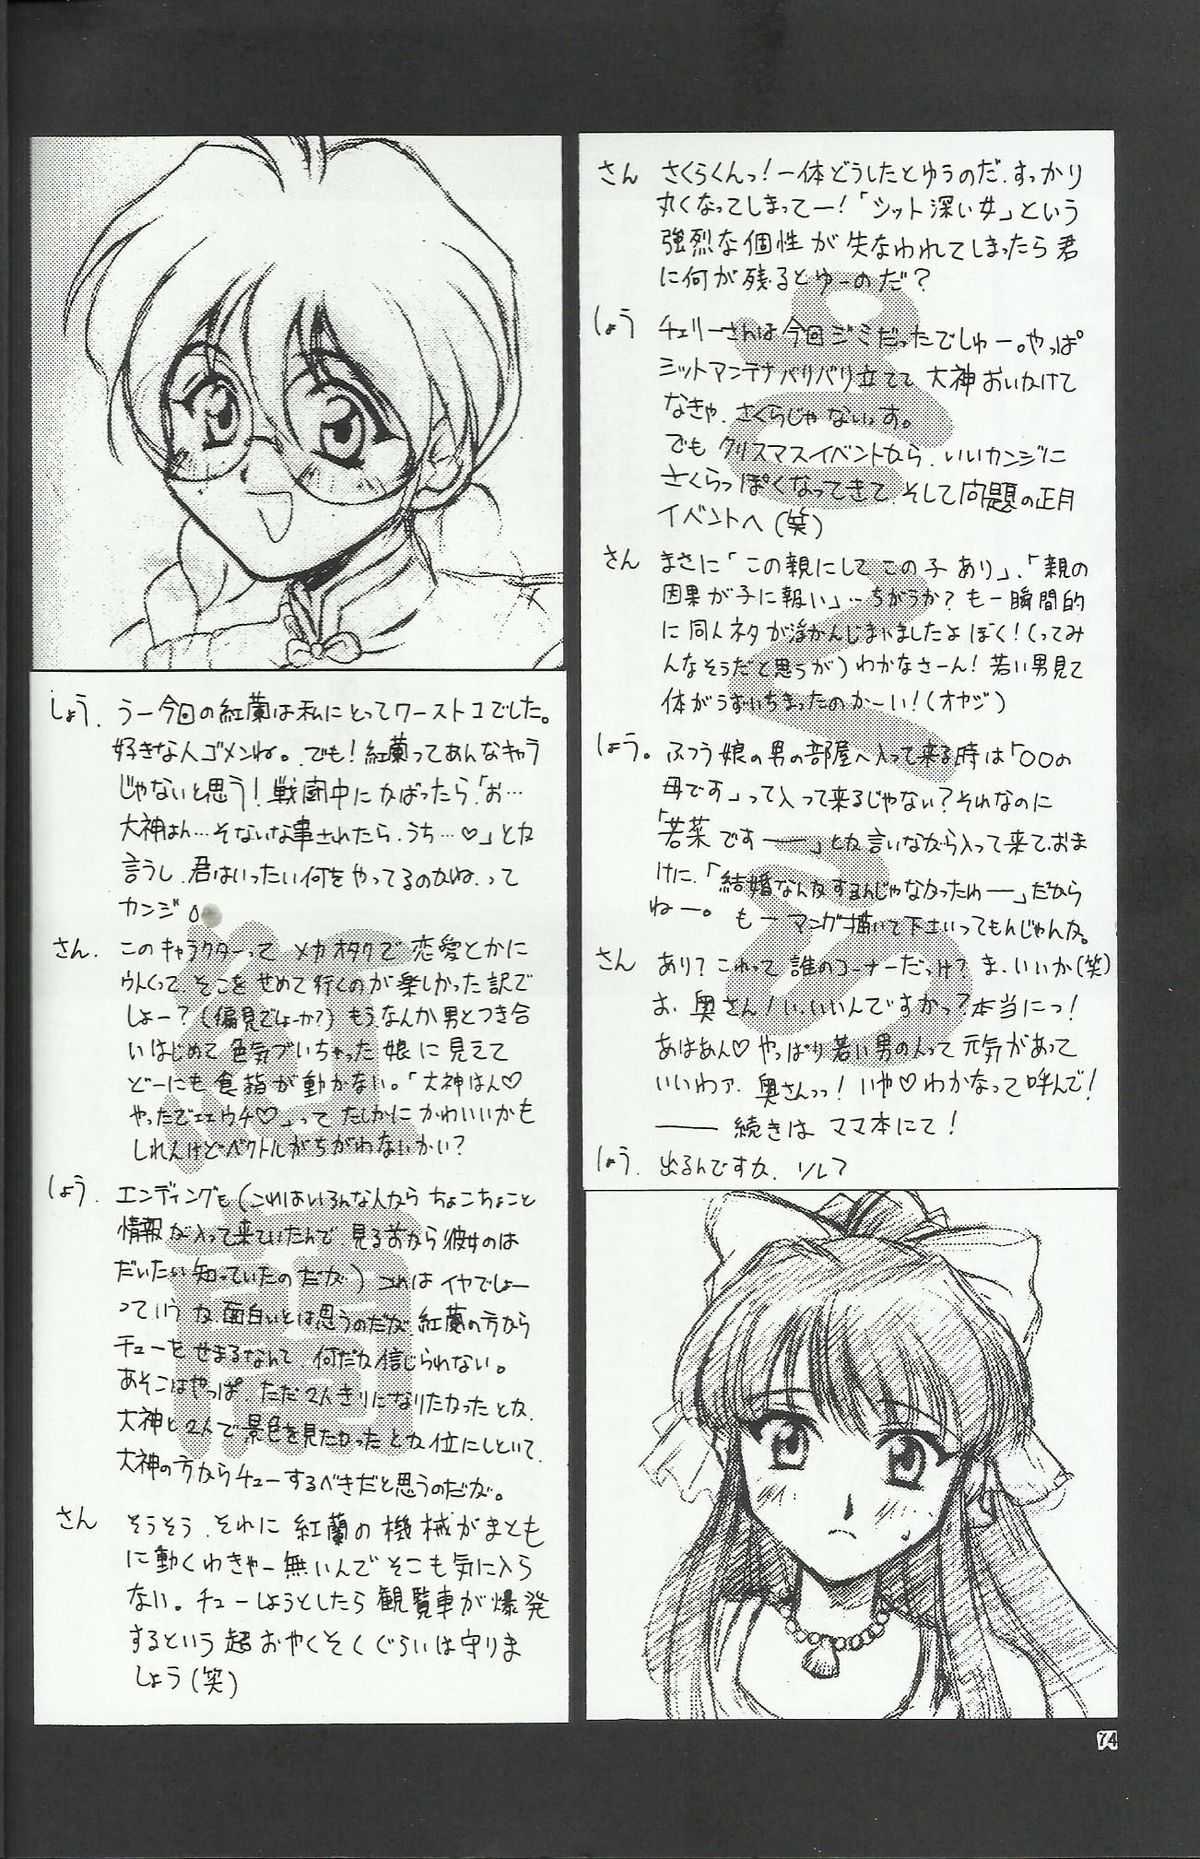 さん さくらくんっ!一体どうしたとゆうのだ、すっかり
丸くなってしまってー!「シット深い女」という
強烈な個性が失なわれてしまったら君
に何が残るとゆーのだ?
しょう チェリーさんは今回ジミだったでしゅー。やっぱ
シットアンテナバリバリ立てて大神おいかけて
なきゃ、さくらじゃないっす。
でもクリスマスイベントから、いいカンジに
さくらっぽくなってきて、そして問題の正月
イベントへ(笑)
さん まさに「この親にしてこの子あり」、「親の
因果が子に報い」…ちがうか?もー瞬間的
に同人ネタが浮かんじまいましたよぼく!(ってみ
んなそうだと思うが)わかなさーん!若い男見て
体がうずいちまったのかーい!(オヤジ)
しょう。ふつう娘の男の部屋へ入って来る時は「〇〇の
母です」って入って来るじゃない?それなのに
「若菜ですー」とか言いながら入って来て、おま
けに、「結婚なんかするんじゃなかったわー」だから
ねー。もーマンガ描いて下さいってもんじゃんか。
さん あり?これって誰のコーナーだっけ?ま、いいか(笑)
お、奥さん!い、いいんですかっ?本当にっ!
あはあん♡やっぱり若い男の人って元気があって
いいわァ、奥さんっっ!いや♡わかなって呼んで!
――続きはママ本にて!
しょう、出るんですか、ソレ?
しょう、うー今回の紅蘭は私にとってワースト1でした。
好きな人ゴメンね。でも!紅蘭ってあんなキャラ
じゃないと思う!戦闘中にかばったら「お…
大神はん…そないな事されたら、うち…♡」とか
言うし、君はいったい何をやってるのかね、って
カンジ
さん、このキャラクターってメカオタクで恋愛とかに
ウトくって、そこをせめて行くのが楽しかった訳で
しょー?(偏見でしょーか?)もう、なんか男とつき合
いはじめて色気づいちゃった娘に見えて
どーにも食指が動かない。「大神はん♡
やったでエエウチ♡」ってたしかにかわいいかも
しれんけどベクトルがちがわないかい?
しょう、エンディングも(これはいろんな人からちょこちょこと
情報が入って来ていたんで、見る前から彼女のは
だいたい知っていたのだが)これはイヤでしょー
っていうか、面白いとは思うのだが紅蘭の方から
チューをせまるなんて、何だか信じられない。
あそこはやっぱ、ただ2人きりになりたかったとか、
大神と2人で景色を見たかったとか位にしといて、
大神の方からチューするべきだと思うのだが。
さん そうそう、それに紅蘭の機械がまとも
に動くわきゃー無いんでそこも気に入ら
ない。チューしようとしたら観覧車が爆発
するという超おやくそくぐらいは守りま
しょう(笑)
74